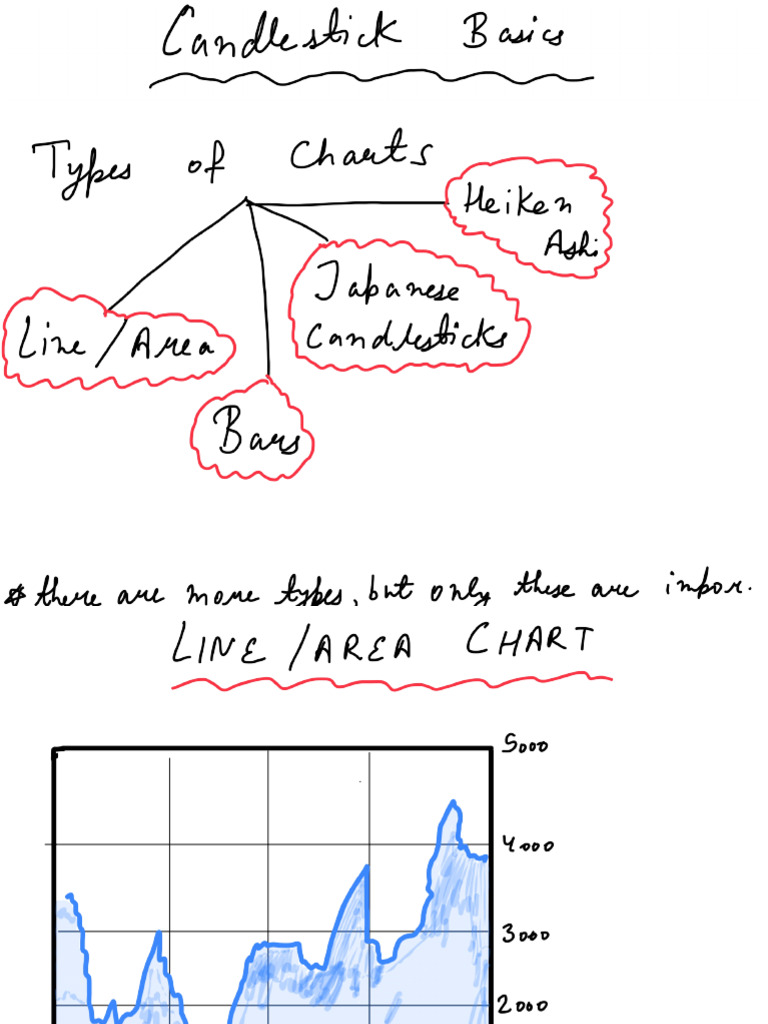 Candlestick Basics
Types of Charts
Heiken
Ashi
Japanese
Candlesticks
Line / Area
Bars
* there are more types, but only these are impor.
LINE / AREA CHART
5000
4000
3000
2000